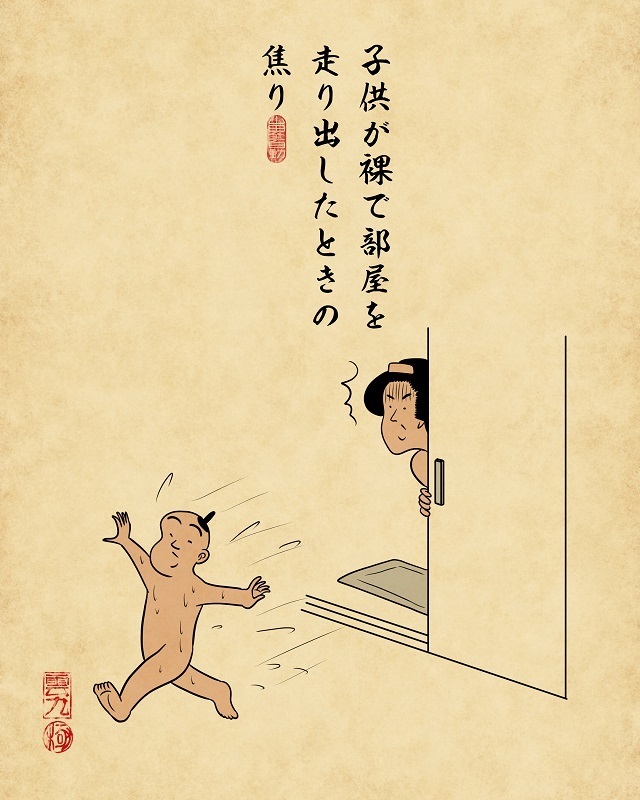 子供が裸で部屋を
走り出したときの
焦り